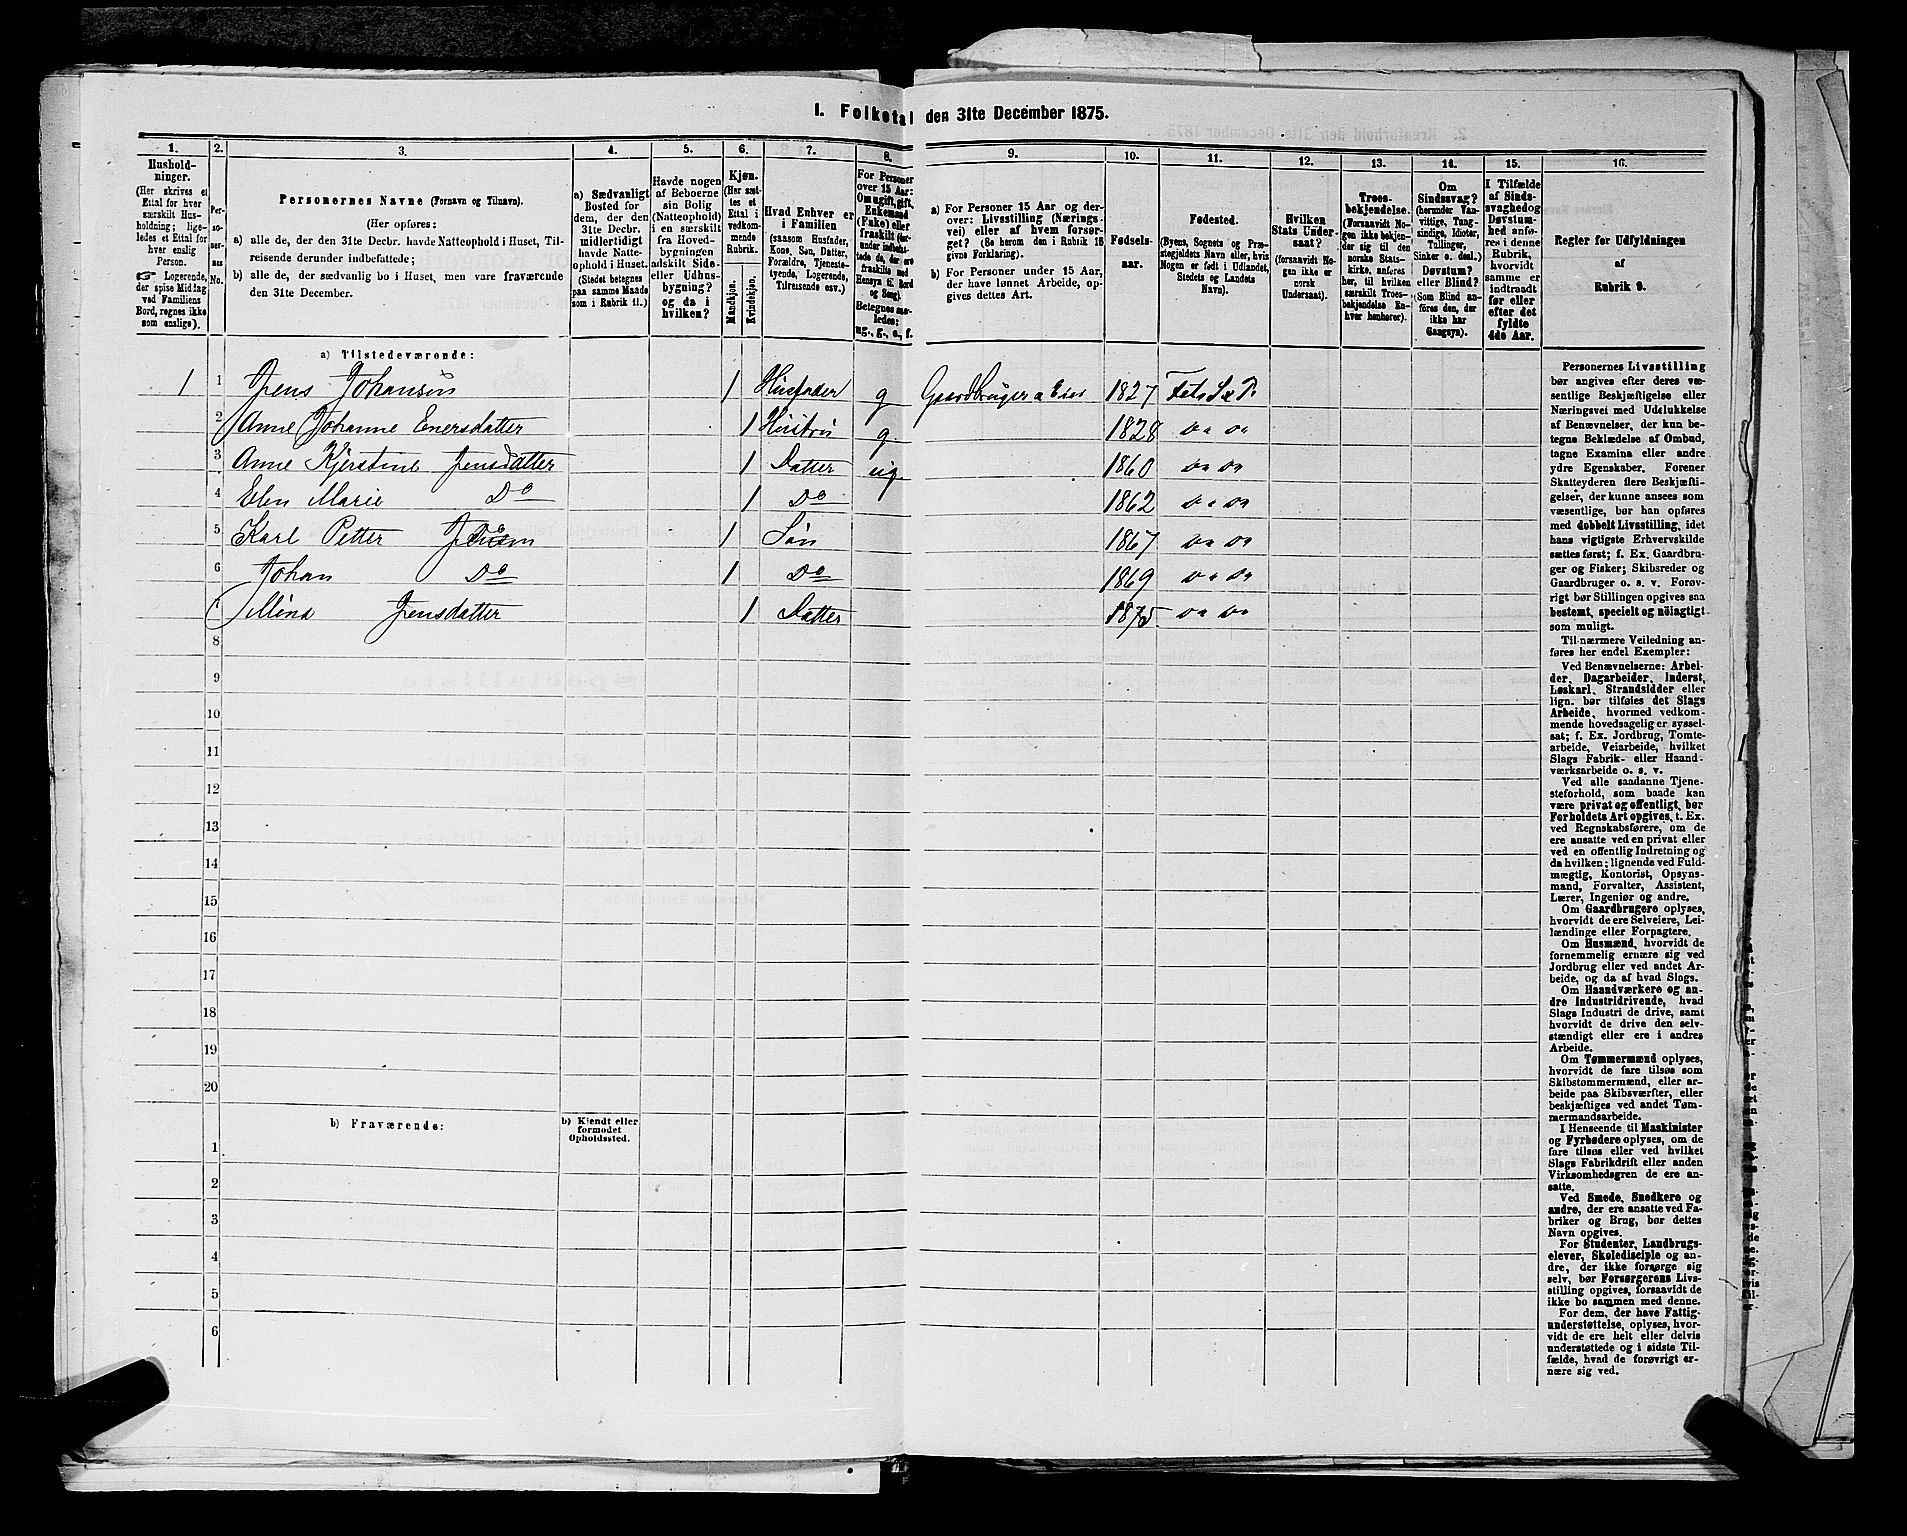 I. Folketal den 31te December 1875.
1. 2. 3. 4. 5. 6. 7. 8. 9. 10. 11. 12. 13. 14. 15. 16.
Hushold-
ninger.
(Her skrives et
Ettal for hver
særskilt Hus-
holdning; lige-
ledes et Ettal for
hver enslig
Person.
☞ Logerende,
der spise Middag
ved Familiens
Bord, regnes ikke
som enslige).
Per-
so-
ner-
nes
No.
Personernes Navne (Fornavn og Tilnavn).
(Her opføres:
a) alle de, der den 31te Decbr. havde Natteophold i Huset, Til-
reisende derunder indbefattede;
b) alle de, der sædvanlig bo i Huset, men vare fraværende
den 31te December.
a) Sædvanligt
Bosted for
dem, der den
31te Decbr.
midlertidigt
havde Natte-
ophold i Huset.
(Stedet betegnes
paa samme Maade
som i Rubrik 11.)
Havde nogen
af Beboerne
sin Bolig
(Natteophold)
i en særskilt
fra Hoved-
bygningen
adskilt Side-
eller Udhus-
bygning?
og da i
hvilken?
Kjøn.
(Her sæt-
tes et
Ettal i
vedkom-
mende
Rubrik.
Mandkjøn.
Kvindekjøn.
Hvad Enhver er
i Familien
(saasom Husfader,
Kone, Søn, Datter,
Forældre, Tjeneste-
tyende, Logerende,
Tilreisende osv.)
For Personer
over 15 Aar:
Om ugift, gift,
Enkemand
(Enke) eller
fraskilt (her-
under indbefat-
tede de, der ere
fraskilte med
Hensyn til Bord
og Seng).
Betegnes saa-
ledes:
ug., g., e., f.
a) For Personer 15 Aar og der-
over: Livsstilling (Nærings-
vei) eller af hvem forsør-
get? (Se herom den i Rubrik 16
givne Forklaring).
b) For Personer under 15 Aar,
der have lønnet Arbeide, op-
gives dettes Art.
Fødsels-
aar.
Fødested.
(Byens, Sognets og Præ-
stegjeldets Navn eller, hvis
Nogen er født i Udlandet,
Stedets og Landets
Navn).
Hvilken
Stats Under-
saat?
(forsaavidt No-
gen ikke er
norsk
Undersaat).
Troes-
bekjendelse.
(Forsaavidt No-
gen ikke bekjen-
der sig til den
norske Stats-
kirke, anføres
her, til hvilken
særskilt Troes-
bekjendelse En-
hver henhører).
Om
Sindssvag?
(herunder Van-
vittige, Tung-
sindige, Idioter,
Tullinger,
Sinker o. desl.)
Døvstum?
eller Blind?
(Som Blind an-
føres den, der
ikke har
Gangsyn).
I Tilfælde
af Sinds-
svaghed og
Døvstum-
hed anfø-
res i denne
Rubrik,
hvorvidt
samme er
indtraadt
før eller
efter det
fyldte
4de Aar.
Regler for Udfyldningen
af
Rubrik 9.
a) Tilstedeværende:
1 1 Jens Johansen 1 Husfader g Gaardbruger a Eier 1827 Fets S & P.
2 Anne Johanne Enersdatter 1 Hustru g 1828 do do
3 Anne Kjerstine Jensdatter 1 Datter ug. 1860 do do
4 Elen Marie Do 1 Do 1862 do do
5 Karl Petter 1 Søn 1867 do do
6 Johan Do 1 Do 1869 do do
7 Mina Jensdatter 1 Datter 1875 do do
8
9
10
11
12
13
14
15
16
17
18
19
20
b) Fraværende:
b) Kjendt eller
formodet
Opholdssted.
1
2
3
4
5
6
Personernes Livsstilling
bør angives efter deres væ-
sentlige Beskjæftigelse eller
Næringsvei med Udelukkelse
af Benævnelser, der kun be-
tegne Beklædelse af Ombud,
tagne Examina eller andre
ydre Egenskaber. Forener
Skatteyderen flere Beskjæfti-
gelser, der kunne ansees som
væsentlige, bør han opføres
med dobbelt Livsstilling, idet
hans vigtigste Erhvervskilde
sættes først; f. Ex. Gaardbru-
ger og Fisker; Skibsreder og
Gaardbruger o. s. v. Forøv-
rigt bør Stillingen opgives saa
bestemt, specielt og nöiagtigt
som muligt.
Til nærmere Veiledning an-
føres her endel Exempler:
Ved Benævnelserne: Arbei-
der, Dagarbeider, Inderst,
Løskarl, Strandsidder eller
lign. bør tilføies det Slags
Arbeide, hvormed vedkom-
mende hovedsagelig er syssel-
sat; f. Ex. Jordbrug, Tomte-
arbeide, Veiarbeide, hvilket
Slags Fabrik- eller Haand-
værksarbeide o. s. v.
Ved alle saadanne Tjene-
steforhold, som baade kan
være privat og offentligt, bør
Forholdets Art opgives, t. Ex.
ved Regnskabsførere, om de
ere ansatte ved en privat eller
ved en offentlig Indretning og
da hvilken; lignende ved Fuld-
mægtig, Kontorist, Opsyns-
mand, Forvalter, Assistent,
Lærer, Ingeniør og andre.
Om Gaardbrugere oplyses,
hvorvidt de ere Selveiere, Lei-
lændinge eller Forpagtere.
Om Husmænd, hvorvidt de
fornemmelig ernære sig ved
Jordbrug eller ved andet Ar-
beide, og da af hvad Slags.
Om Haandværkere og an-
dre Industridrivende, hvad
Slags Industri de drive, samt
hvorvidt de drive den selv-
stændigt eller ere i andres
Arbeide.
Om Tømmermænd oplyses,
hvorvidt de fare tilsøs som
Skibstømmermænd, eller ar-
beide paa Skibsværfter, eller
beskjæftiges ved andet Tøm-
mermandsarbeide.
I Henseende til Maskinister
og Fyrbødere oplyses, om de
fare tilsøs eller ved hvilket
Slags Fabrikdrift eller anden
Virksomhedsgren de ere an-
satte.
Ved Smede, Snedkere og
andre, der ere ansatte ved Fa-
briker og Brug, bør dettes
Navn opgives.
For Studenter, Landbrugs-
elever, Skoledisciple og an-
dre, der ikke forsørge sig
selv, bør Forsørgerens Livs-
stilling opgives, forsaavidt de
ikke bo sammen med denne.
For dem, der have Fattig-
understøttelse, oplyses, hvor-
vidt de ere helt eller delvis
understøttede og i sidste Til-
fælde, hvad de forøvrigt er-
nære sig ved.